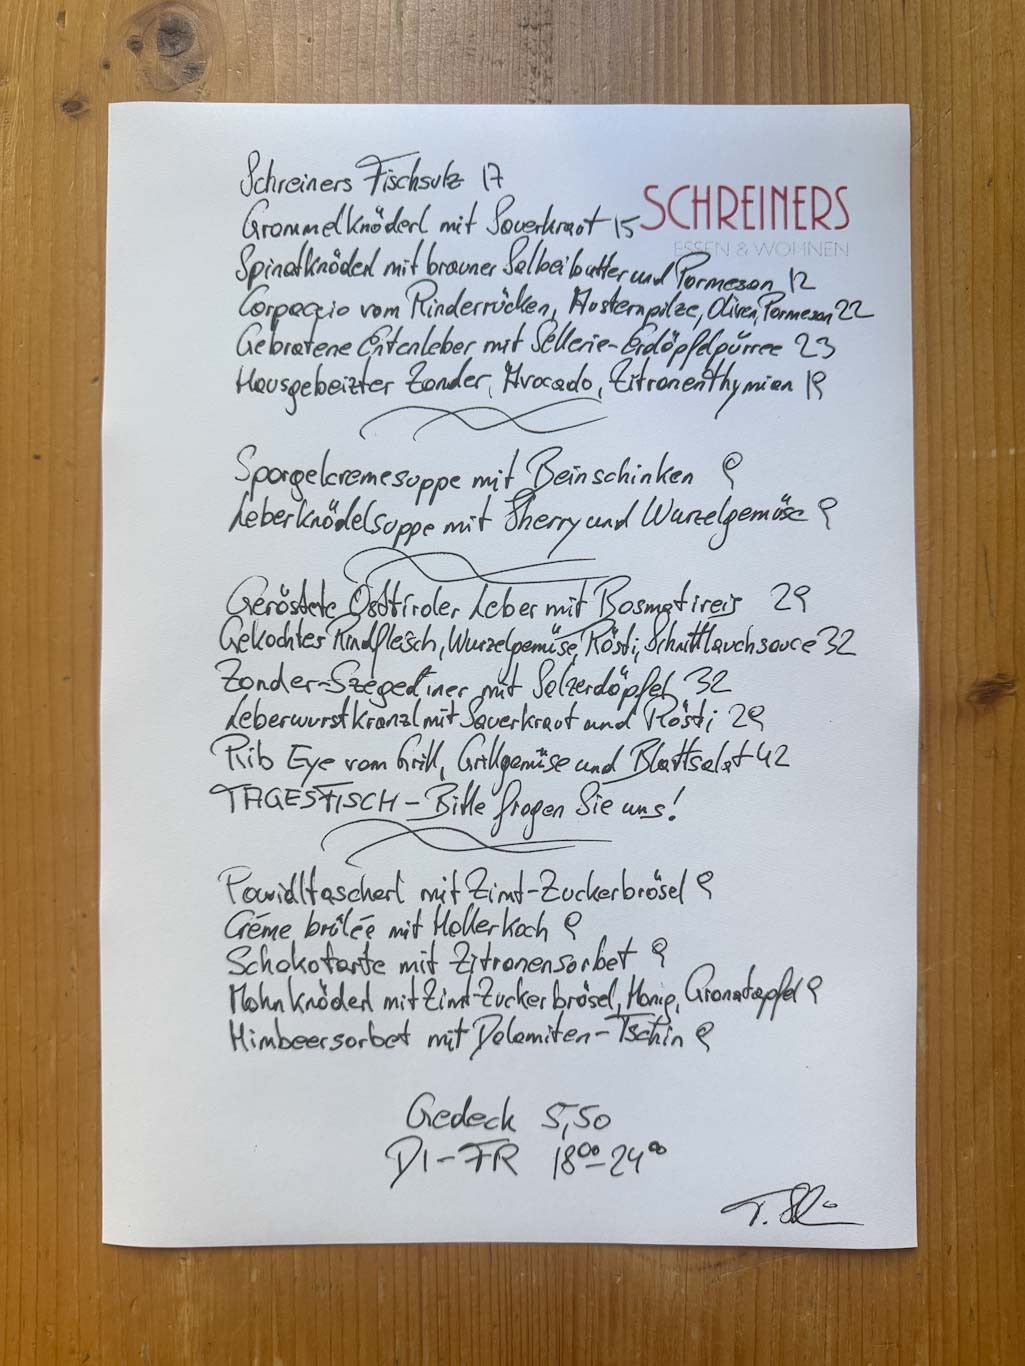 Schreiners Fischsulz 17
SCHREINERS
ESSEN & WOHNEN
Grammelknöderl mit Sauerkraut 15
Spinatknöderl mit brauner Salbeibutter und Parmesan 12
Carpaccio vom Rinderrücken, Austernpilze, Oliven, Parmesan 22
Gebratene Entenleber mit Sellerie-Erdöpfelpürree 23
Hausgebeizter Zander, Avocado, Zitronenthymian 19
Spargelcremesuppe mit Beinschinken 9
Leberknödelsuppe mit Sherry und Wurzelgemüse 9
Geröstete Osttiroler Leber mit Basmatireis 29
Gekochtes Rindfleisch, Wurzelgemüse, Rösti, Schnittlauchsauce 32
Zander-Szegediner mit Salzerdöpfel 32
Leberwurstkranzl mit Sauerkraut und Rösti 29
Rib Eye vom Grill, Grillgemüse und Blattsalat 42
TAGESFISCH - Bitte fragen Sie uns!
Powidltascherl mit Zimt-Zuckerbrösel 9
Créme brûlée mit Hollerkoch 9
Schokotarte mit Zitronensorbet 9
Mohnknöderl mit Zimt-Zuckerbrösel, Honig, Granatapfel 9
Himbeersorbet mit Dolomiten-Tschin 9
Gedeck 5,50
DI-FR 18⁰⁰-24⁰⁰